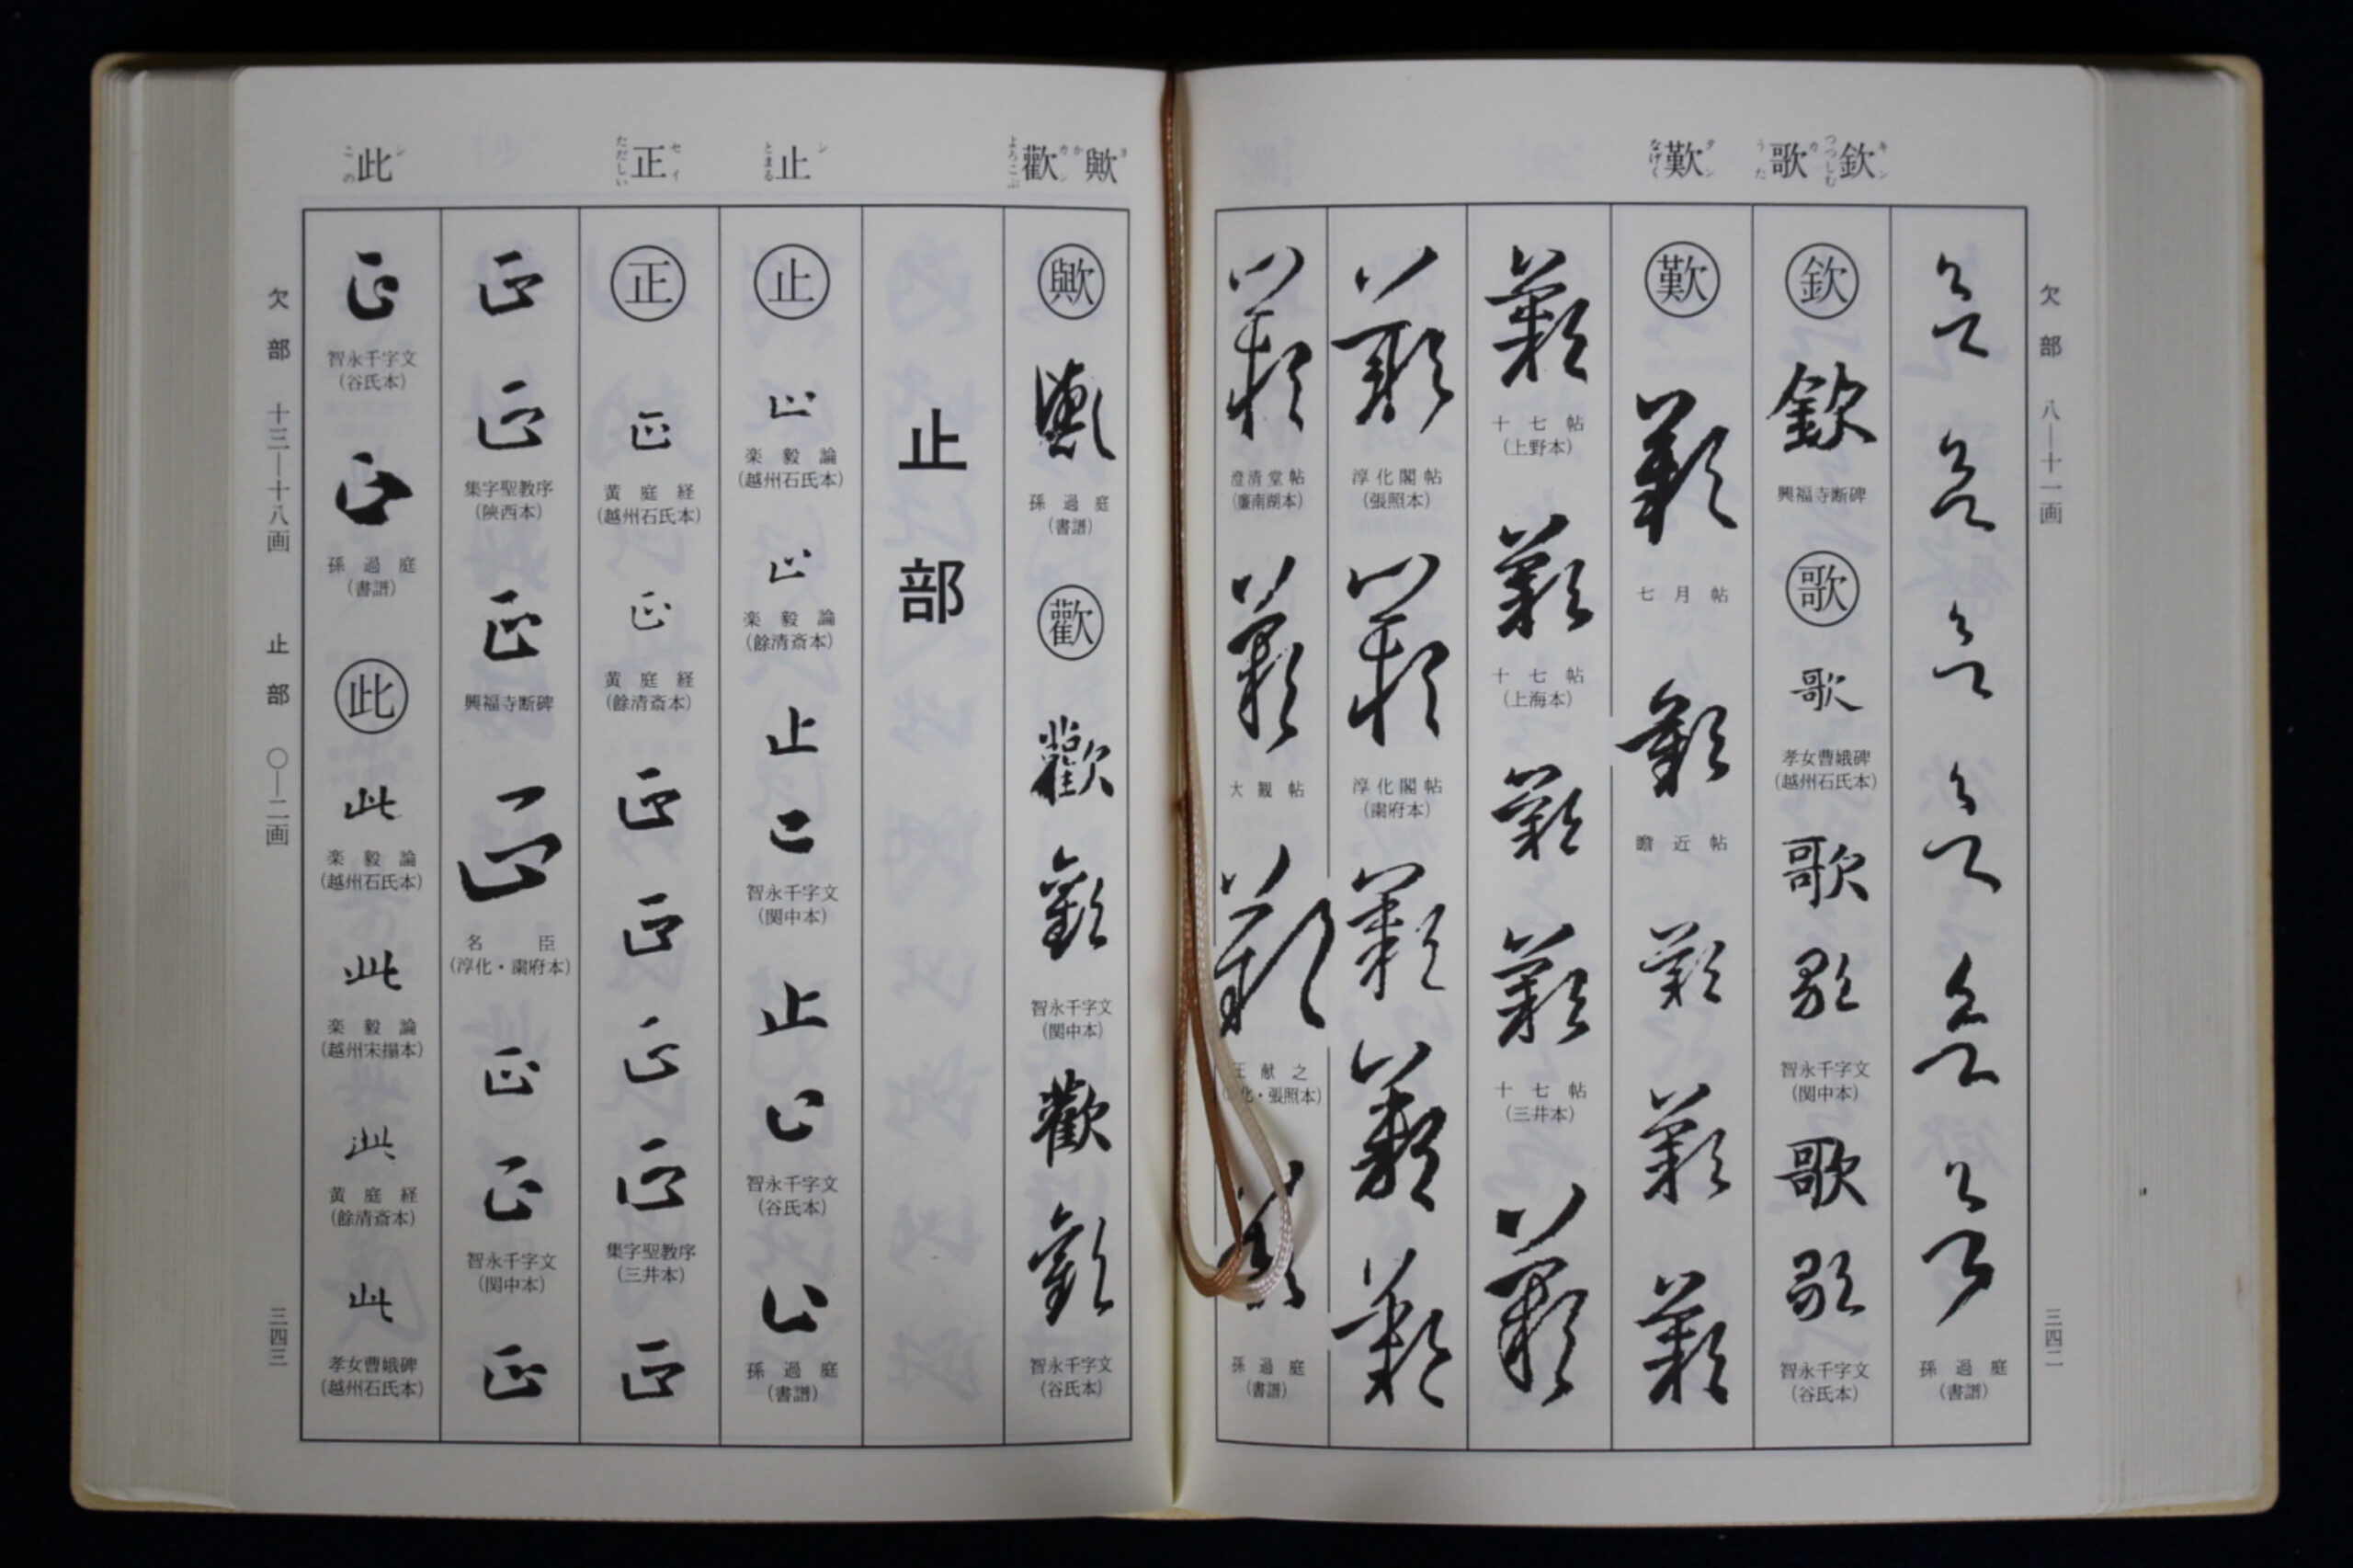 欠部 八―十一画
三四二
欽 キン つつしむ
歌 カ うた
歎 タン なげく
孫過庭
(書譜)
欽
欽
興福寺断碑
歌
歌
孝女曹娥碑
(越州石氏本)
歌
歌
智永千字文
(関中本)
歌
歌
智永千字文
(谷氏本)
歎
歎
七月帖
歎
瞻近帖
歎
歎
歎
歎
十七帖
(上野本)
歎
十七帖
(上海本)
歎
歎
十七帖
(三井本)
歎
歎
淳化閣帖
(張照本)
歎
淳化閣帖
(粛府本)
歎
歎
歎
歎
澄清堂帖
(廉南湖本)
歎
大観帖
歎
王献之
化・張照本)
孫過庭
(書譜)
歟 ヨ か
歡 カン よろこぶ
止 シ とまる
正 セイ ただしい
此 シ この
歟
歟
孫過庭
(書譜)
歡
歡
歡
智永千字文
(関中本)
歡
歡
智永千字文
(谷氏本)
止部
止
止
楽毅論
(越州石氏本)
止
楽毅論
(餘清斎本)
止
止
智永千字文
(関中本)
止
止
智永千字文
(谷氏本)
止
孫過庭
(書譜)
正
正
黄庭経
(越州石氏本)
正
黄庭経
(餘清斎本)
正
正
正
正
集字聖教序
(三井本)
正
正
正
集字聖教序
(陝西本)
正
興福寺断碑
正
名臣
(淳化・粛府本)
正
正
智永千字文
(関中本)
正
正
智永千字文
(谷氏本)
正
孫過庭
(書譜)
此
此
楽毅論
(越州石氏本)
此
楽毅論
(越州宋搨本)
此
黄庭経
(餘清斎本)
此
孝女曹娥碑
(越州石氏本)
欠部 十三―十八画 止部 〇―二画
三四三